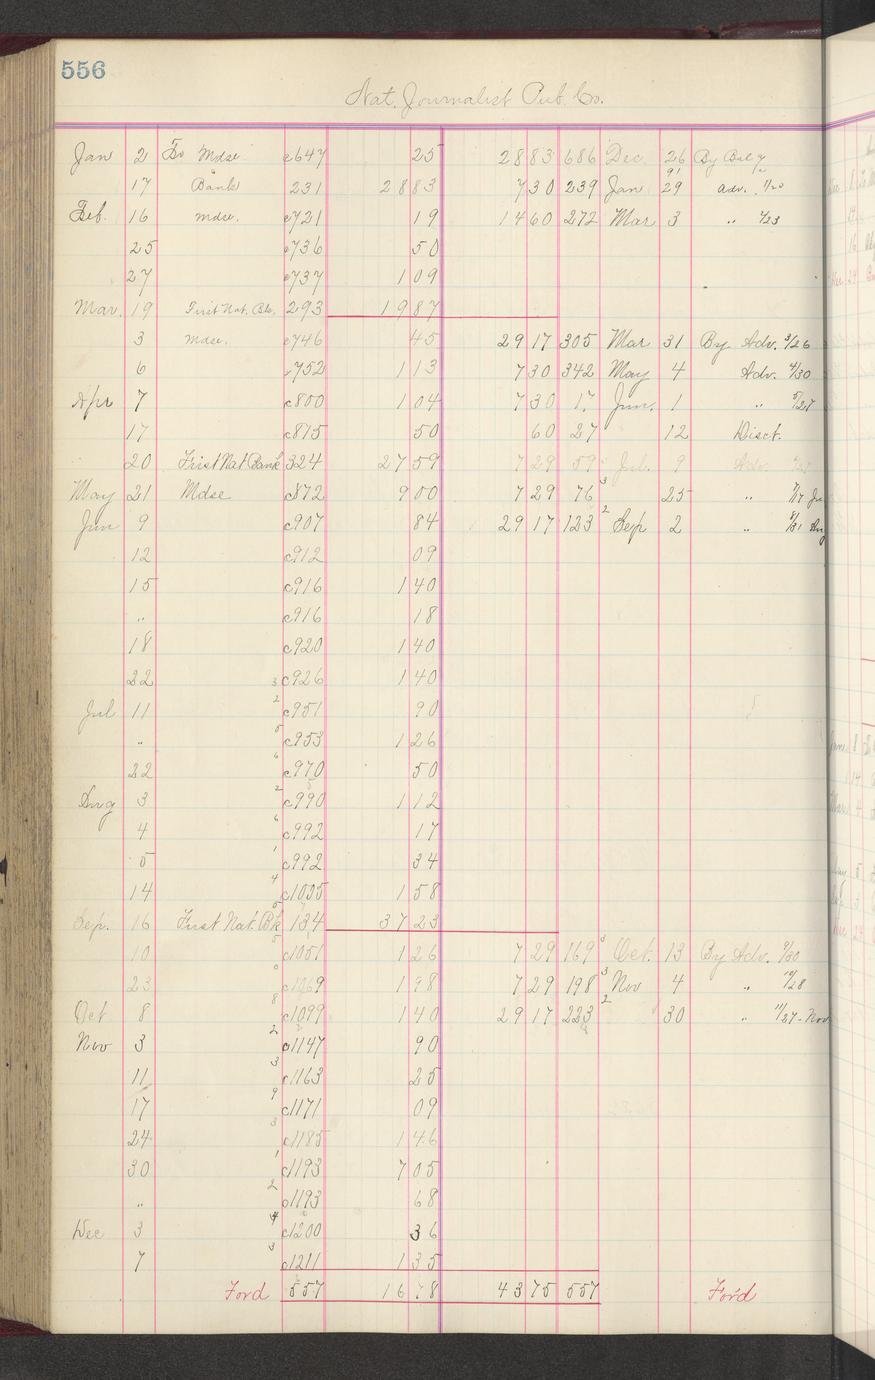 556
Nat. Journalist Pub. Co.
Jan 2 To Mdse c647 25 2883 686 Dec 26 By Bal
17 Bank 231 2883 730 239 Jan 29 adv. 1/20
Feb. 16 mdse. c721 19 1460 272 Mar 3 " 2/23
25 c736 50
27 c737 109
Mar. 19 First Nat. Bk. 293 1987
3 mdse. c746 45 2917 305 Mar 31 By Adv. 3/26
6 c752 113 730 342 May 4 Adv. 4/30
Apr 7 c800 104 730 17 Jun. 1 " 5/27
17 c815 50 60 27 12 Disct.
20 First Nat Bank 324 2759 729 59 Jul. 9 Adv.
May 21 Mdse c872 900 729 76 3 25 " 7/17
Jun 9 c907 84 2917 123 2 Sep 2 " 8/31 Aug
12 c912 09
15 c916 140
" c916 18
18 c920 140
22 3 c926 140
Jul 11 2 c951 90
" 5 c953 126
22 6 c970 50
Aug 3 2 c990 112
4 6 c992 17
5 1 c992 34
14 4 c1035 158
Sep. 16 First Nat. Bk 134 3723
10 5 c1051 126 729 169 3 Oct. 13 By Adv. 9/30
23 c1069 198 729 198 3 Nov 4 " 10/28
Oct 8 8 c1099 140 2917 223 2 30 " 11/27 - Nov
Nov 3 2 c1147 90
11 3 c1163 25
17 9 c1171 09
24 3 c1185 146
30 1 c1193 705
" 2 c1193 68
Dec 3 4 c1200 36
7 3 c1211 135
Ford 557 1678 4375 557 Ford